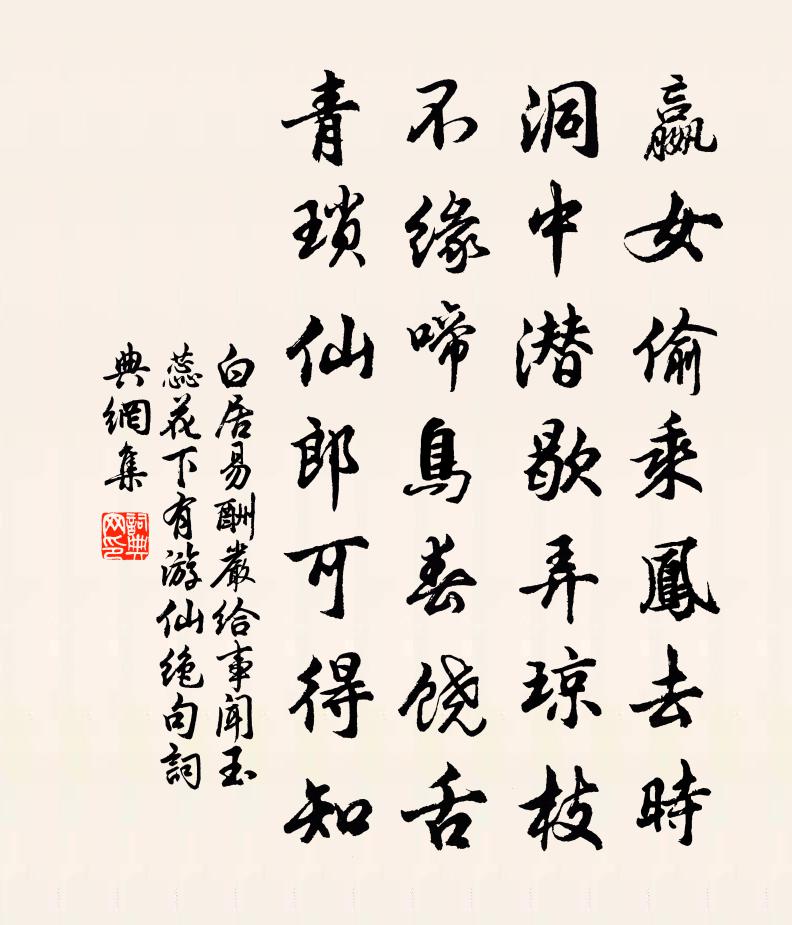 嬴女偷乘鳳去時
洞中潜歇弄琼枝
不缘啼鳥春饶舌
青瑣仙郎可得知
白居易酬嚴给事闻玉
蕊花下有游仙绝句詞
典網集
詞典
网印